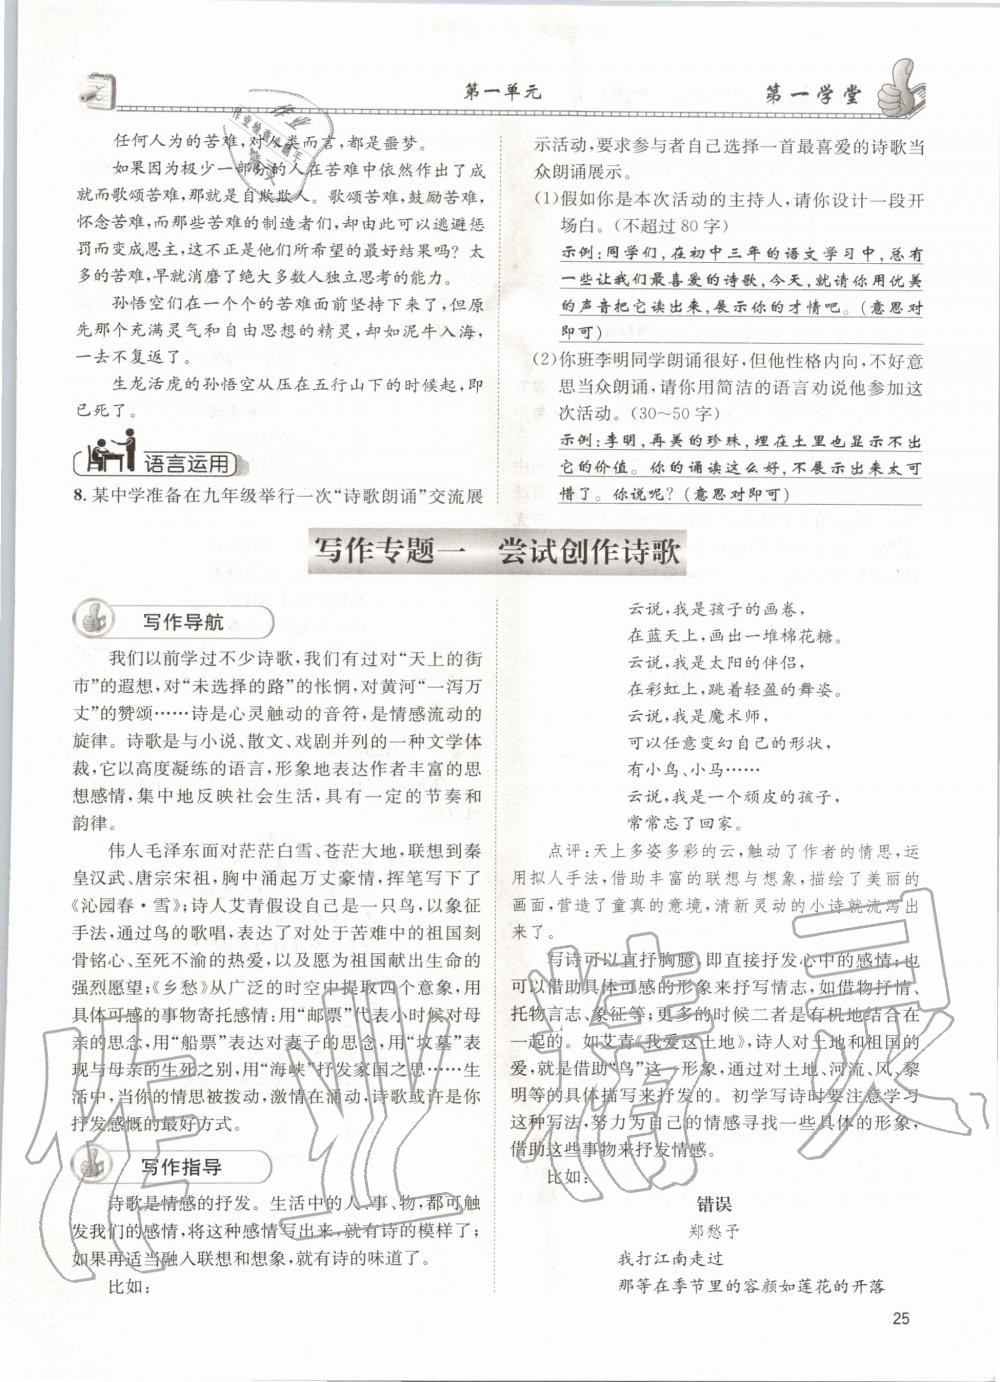 第一单元
第一学堂
任何人为的苦难,对人类而言,都是噩梦。
如果因为极少一部分的人在苦难中依然作出了成
就而歌颂苦难,那就是自欺欺人。歌颂苦难,鼓励苦难,
怀念苦难,而那些苦难的制造者们,却由此可以逃避惩
罚而变成恩主,这不正是他们所希望的最好结果吗?太
多的苦难,早就消磨了绝大多数人独立思考的能力。
孙悟空们在一个个的苦难面前坚持下来了,但原
先那个充满灵气和自由思想的精灵,却如泥牛入海,
一去不复返了。
生龙活虎的孙悟空从压在五行山下的时候起,即
已死了。
语言运用
8.某中学准备在九年级举行一次“诗歌朗诵”交流展
示活动,要求参与者自己选择一首最喜爱的诗歌当
众朗诵展示。
(1)假如你是本次活动的主持人,请你设计一段开
场白。(不超过80字)
示例:同学们,在初中三年的语文学习中,总有
一些让我们最喜爱的诗歌,今天,就请你用优美
的声音把它读出来,展示你的才情吧。(意思对
即可)
(2)你班李明同学朗诵很好,但他性格内向,不好意
思当众朗诵,请你用简洁的语言劝说他参加这
次活动。(30~50字)
示例:李明,再美的珍珠,埋在土里也显示不出
它的价值。你的诵读这么好,不展示出来太可
惜了。你说呢?(意思对即可)
写作专题一 尝试创作诗歌
写作导航
我们以前学过不少诗歌,我们有过对“天上的街
市”的遐想,对“未选择的路”的怅惘,对黄河“一泻万
丈”的赞颂……诗是心灵触动的音符,是情感流动的
旋律。诗歌是与小说、散文、戏剧并列的一种文学体
裁,它以高度凝练的语言,形象地表达作者丰富的思
想感情,集中地反映社会生活,具有一定的节奏和
韵律。
伟人毛泽东面对茫茫白雪、苍茫大地,联想到秦
皇汉武、唐宗宋祖,胸中涌起万丈豪情,挥笔写下了
《沁园春·雪》;诗人艾青假设自己是一只鸟,以象征
手法,通过鸟的歌唱,表达了对处于苦难中的祖国刻
骨铭心、至死不渝的热爱,以及愿为祖国献出生命的
强烈愿望;《乡愁》从广泛的时空中提取四个意象,用
具体可感的事物寄托感情:用“邮票”代表小时候对母
亲的思念,用“船票”表达对妻子的思念,用“坟墓”表
现与母亲的生死之别,用“海峡”抒发家国之思……生
活中,当你的情思被拨动,激情在涌动,诗歌或许是你
抒发感慨的最好方式。
写作指导
诗歌是情感的抒发。生活中的人、事、物,都可触
发我们的感情,将这种感情写出来,就有诗的模样了;
如果再适当融入联想和想象,就有诗的味道了。
比如:
云说,我是孩子的画卷,
在蓝天上,画出一堆棉花糖。
云说,我是太阳的伴侣,
在彩虹上,跳着轻盈的舞姿。
云说,我是魔术师,
可以任意变幻自己的形状,
有小鸟、小马……
云说,我是一个顽皮的孩子,
常常忘了回家。
点评:天上多姿多彩的云,触动了作者的情思,运
用拟人手法,借助丰富的联想与想象,描绘了美丽的
画面,营造了童真的意境,清新灵动的小诗就流泻出
来了。
写诗可以直抒胸臆,即直接抒发心中的感情;也
可以借助具体可感的形象来抒写情志,如借物抒情、
托物言志、象征等;更多的时候二者是有机地结合在
一起的。如艾青《我爱这土地》,诗人对土地和祖国的
爱,就是借助“鸟”这一形象,通过对土地、河流、风、黎
明等的具体描写来抒发的。初学写诗时要注意学习
这种写法,努力为自己的情感寻找一些具体的形象,
借助这些事物来抒发情感。
比如:
错误
郑愁予
我打江南走过
那等在季节里的容颜如莲花的开落
25
作业精灵